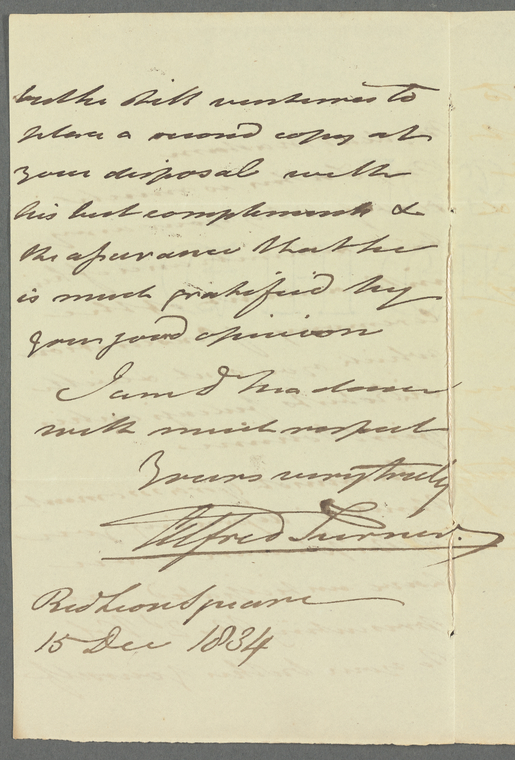 but he still ventures to
place a second copy at
your disposal with
his best compliments &
the assurance that he
is much gratified by
your good opinion
I am d^r Madam
with much respect
Yours very truly
Alfred Turner.
Red Lion Square
15 Dec 1834